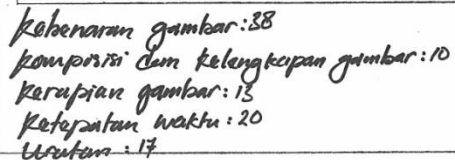 kebenaran gambar : 38
komposisi dan kelengkapan gambar : 10
kerapian gambar : 13
ketepatan waktu : 20
urutan : 17